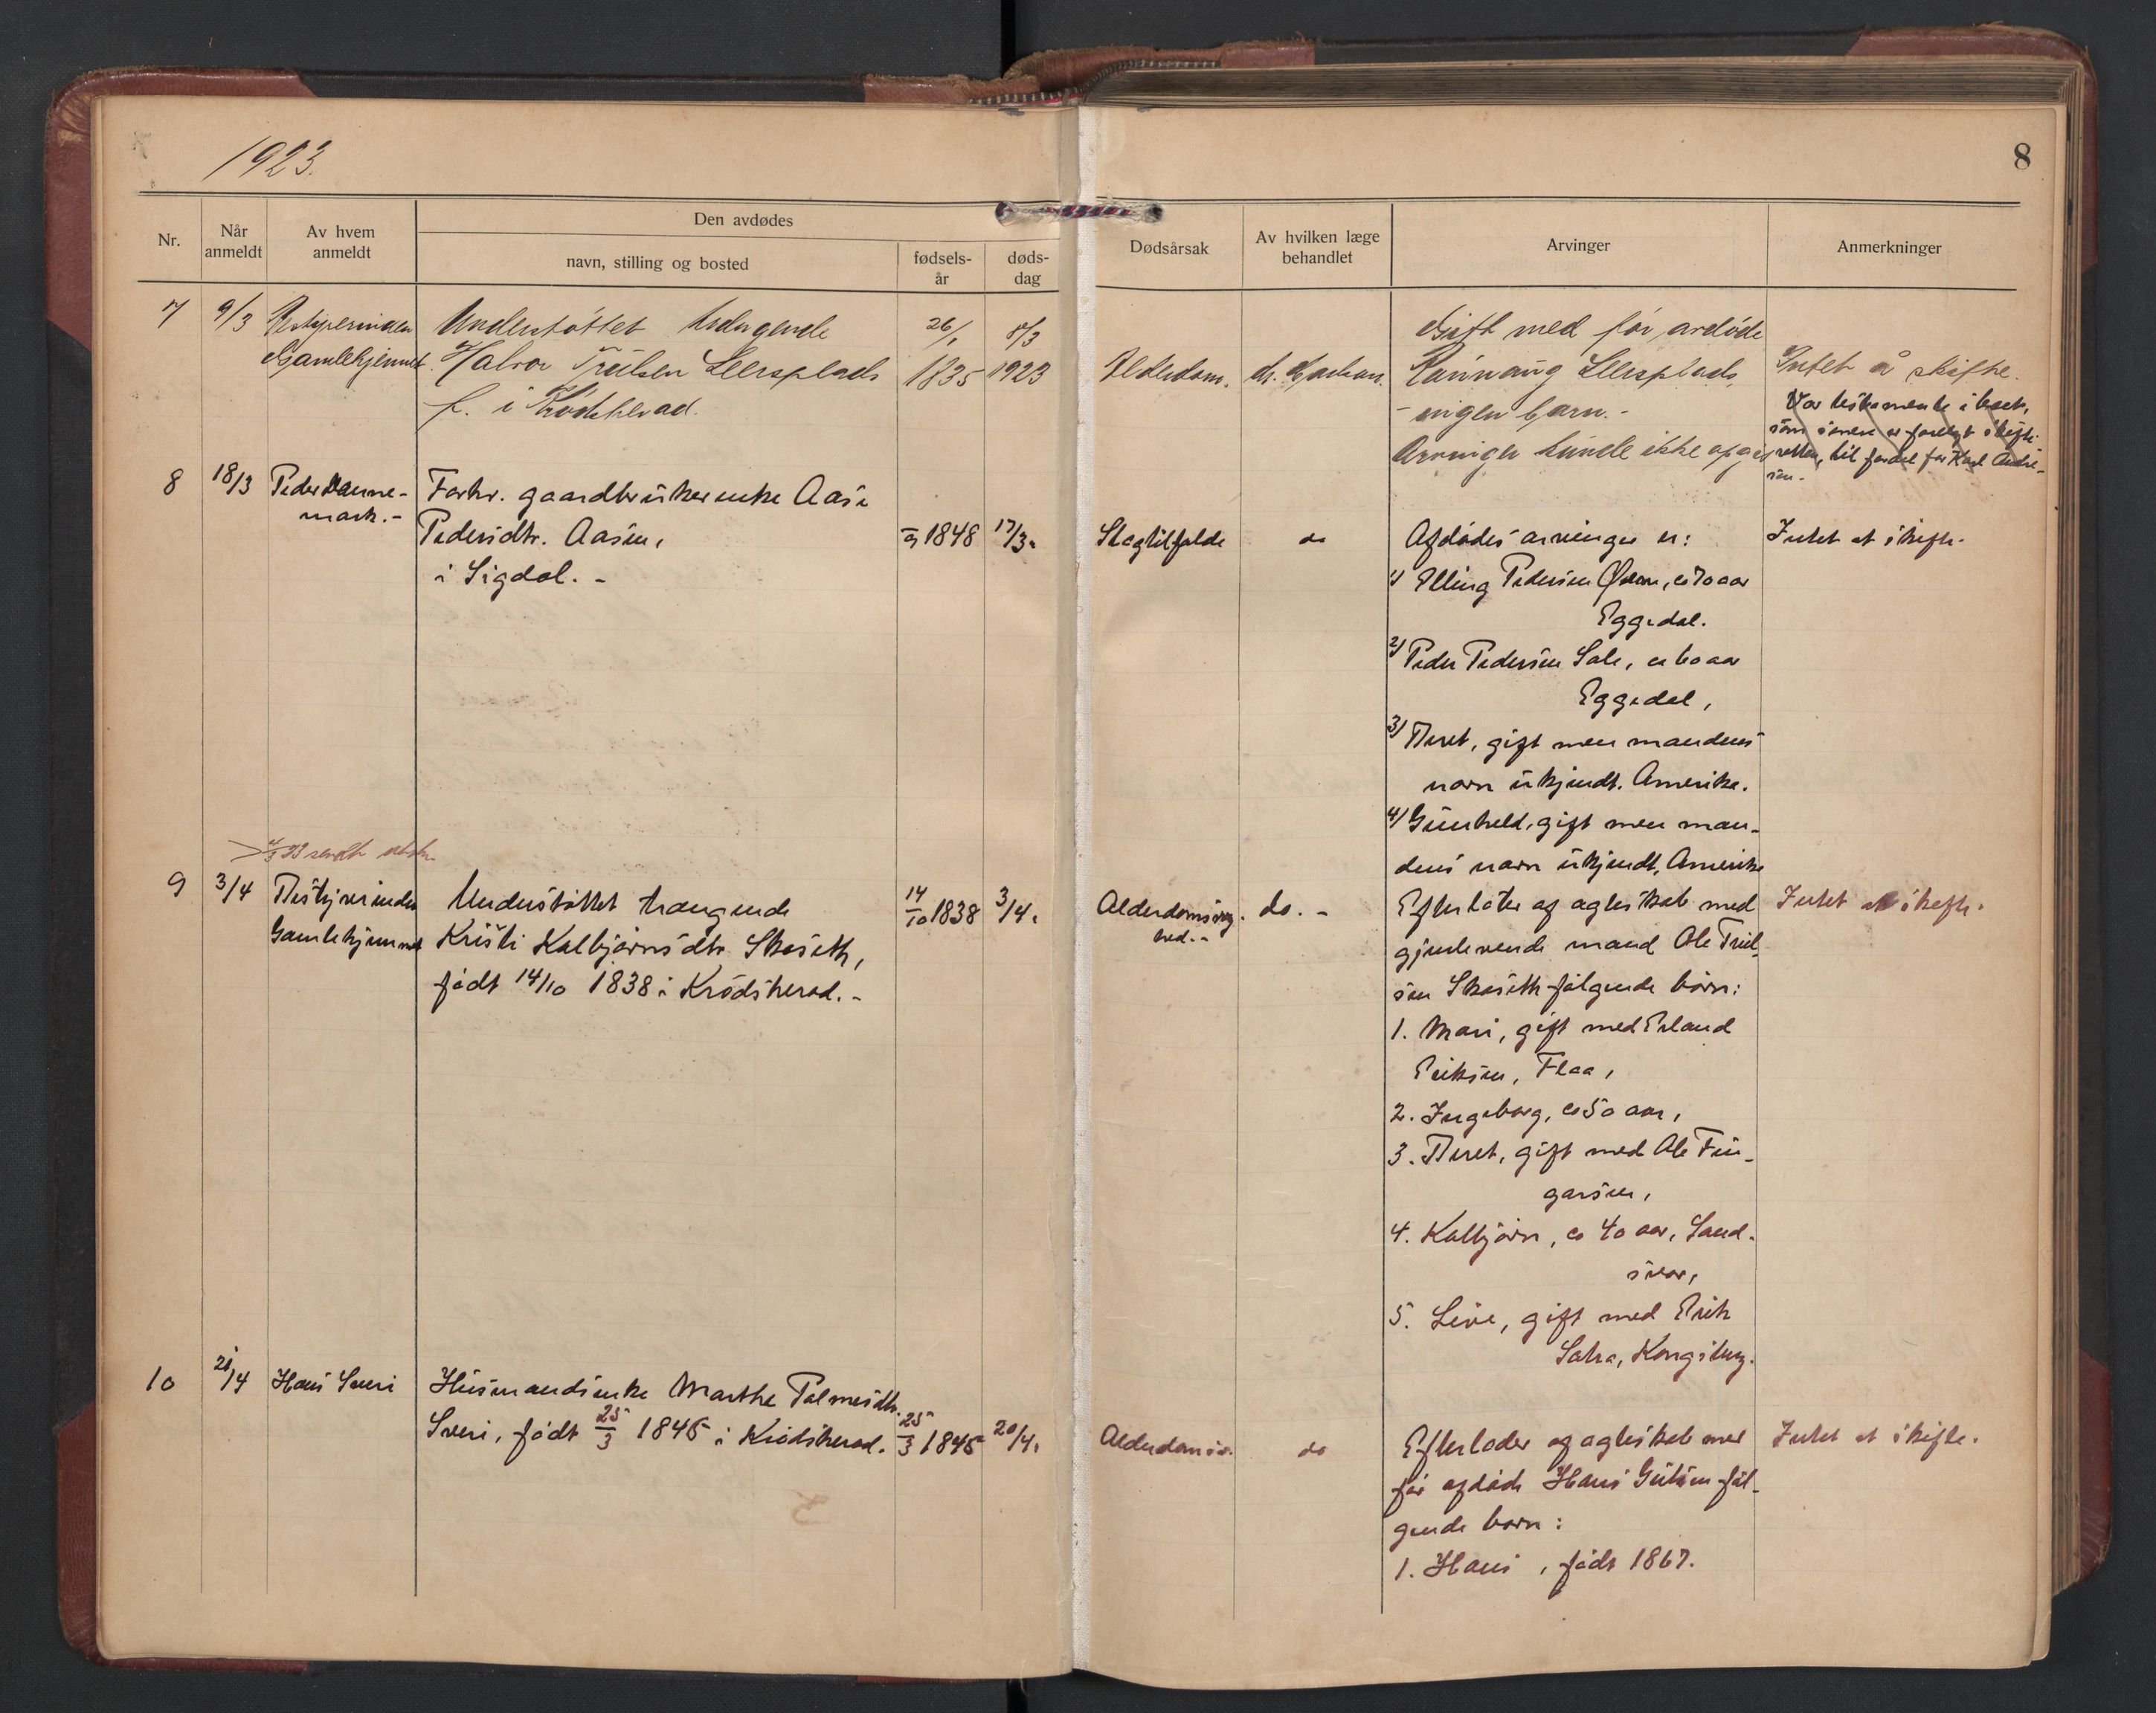 1923.
8
Nr.
Når anmeldt
Av hvem anmeldt
Den avdødes
navn, stilling og bosted
fødsels-
år
døds-
dag
Dødsårsak
Av hvilken læge
behandlet
Arvinger
Anmerkninger
7
9/3
Bestyrerinden
Gamlehjemmet
Understøttet trængende
Halvor Trulsen Leersplads
f. i Krødsherad.
26/1
1835
8/3
1923
Alderdom.
dr.
Gift med før avdøde
Rønnaug Leersplads
- ingen barn. -
Arvinger kunde ikke opgis
Intet å skifte.
Var testamente i boet,
som senere er forelagt skifte-
retten, til fordel for Karl Andre-
sen.
8
18/3
Peder Danne-
mark. -
Forhv. gaardbrukerenke Aase
Pedersdtr. Aasen,
i Sigdal. -
1848
17/3.
Slagtilfælde
do
Afdødes arvinger er:
1) Elling Pedersen, ca 70 aar
Eggedal.
2) Peder Pedersen Sale, ca 60 aar
Eggedal,
3) Beret, gift men mandens
navn ukjendt. Amerika.
4) Gunhild, gift men man-
dens navn ukjendt, Amerika
23 sendt
9
3/4
Bestyrerinden
Gamlehjemmet
Understøttet trængende
Kristi Kolbjørnsdtr. Skaseth,
født 14/10 1838 i Krødsherad. -
14/10 1838
3/4.
Alderdomssvag-
hed. -
do. -
Efterlater af egteskab med
gjenlevende mand Ole Trul-
sen Skaseth følgende børn:
1. Mari, gift med Erland
Eriksen, Flaa,
2. Ingeborg, ca 50 aar,
3. Beret, gift med Ole Fin-
garsen,
4. Kolbjørn, ca 40 aar, Sand-
svær,
5. Live, gift med Erik
Kongsberg.
Intet at skifte.
10
21/4
Hans Sveri
Husmandsenke Marthe Palmesdtr.
Sveri, født 25/3 1845 i Krødsherad.
25/3 1845
20/4.
Alderdomssv.
do
Efterlader af egteskab med
før afdøde Hans Gulsen føl-
gende børn:
1. Hans, født 1867.
Intet at skifte.